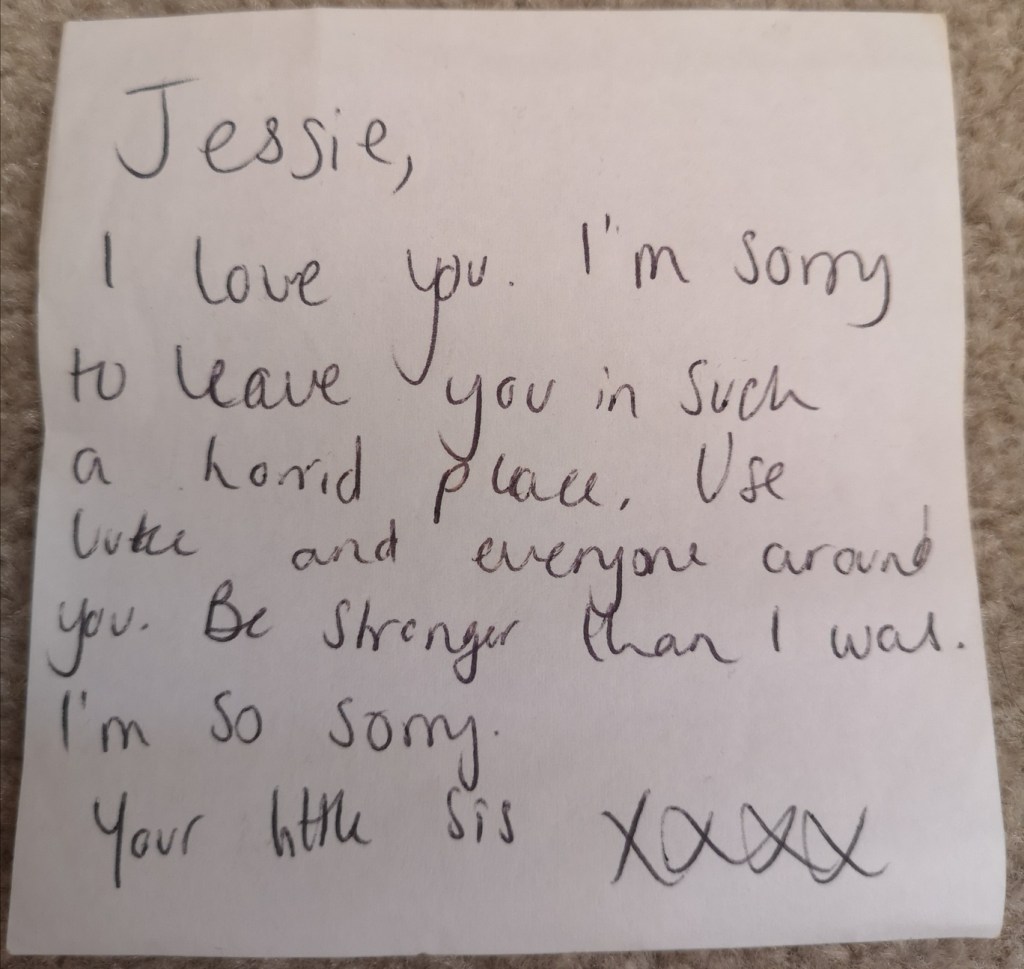 Jessie,
I love you. I'm sorry
to leave you in such
a horrid place. Use
Luke and everyone around
you. Be stronger than I was.
I'm so sorry.
Your little sis xxxx